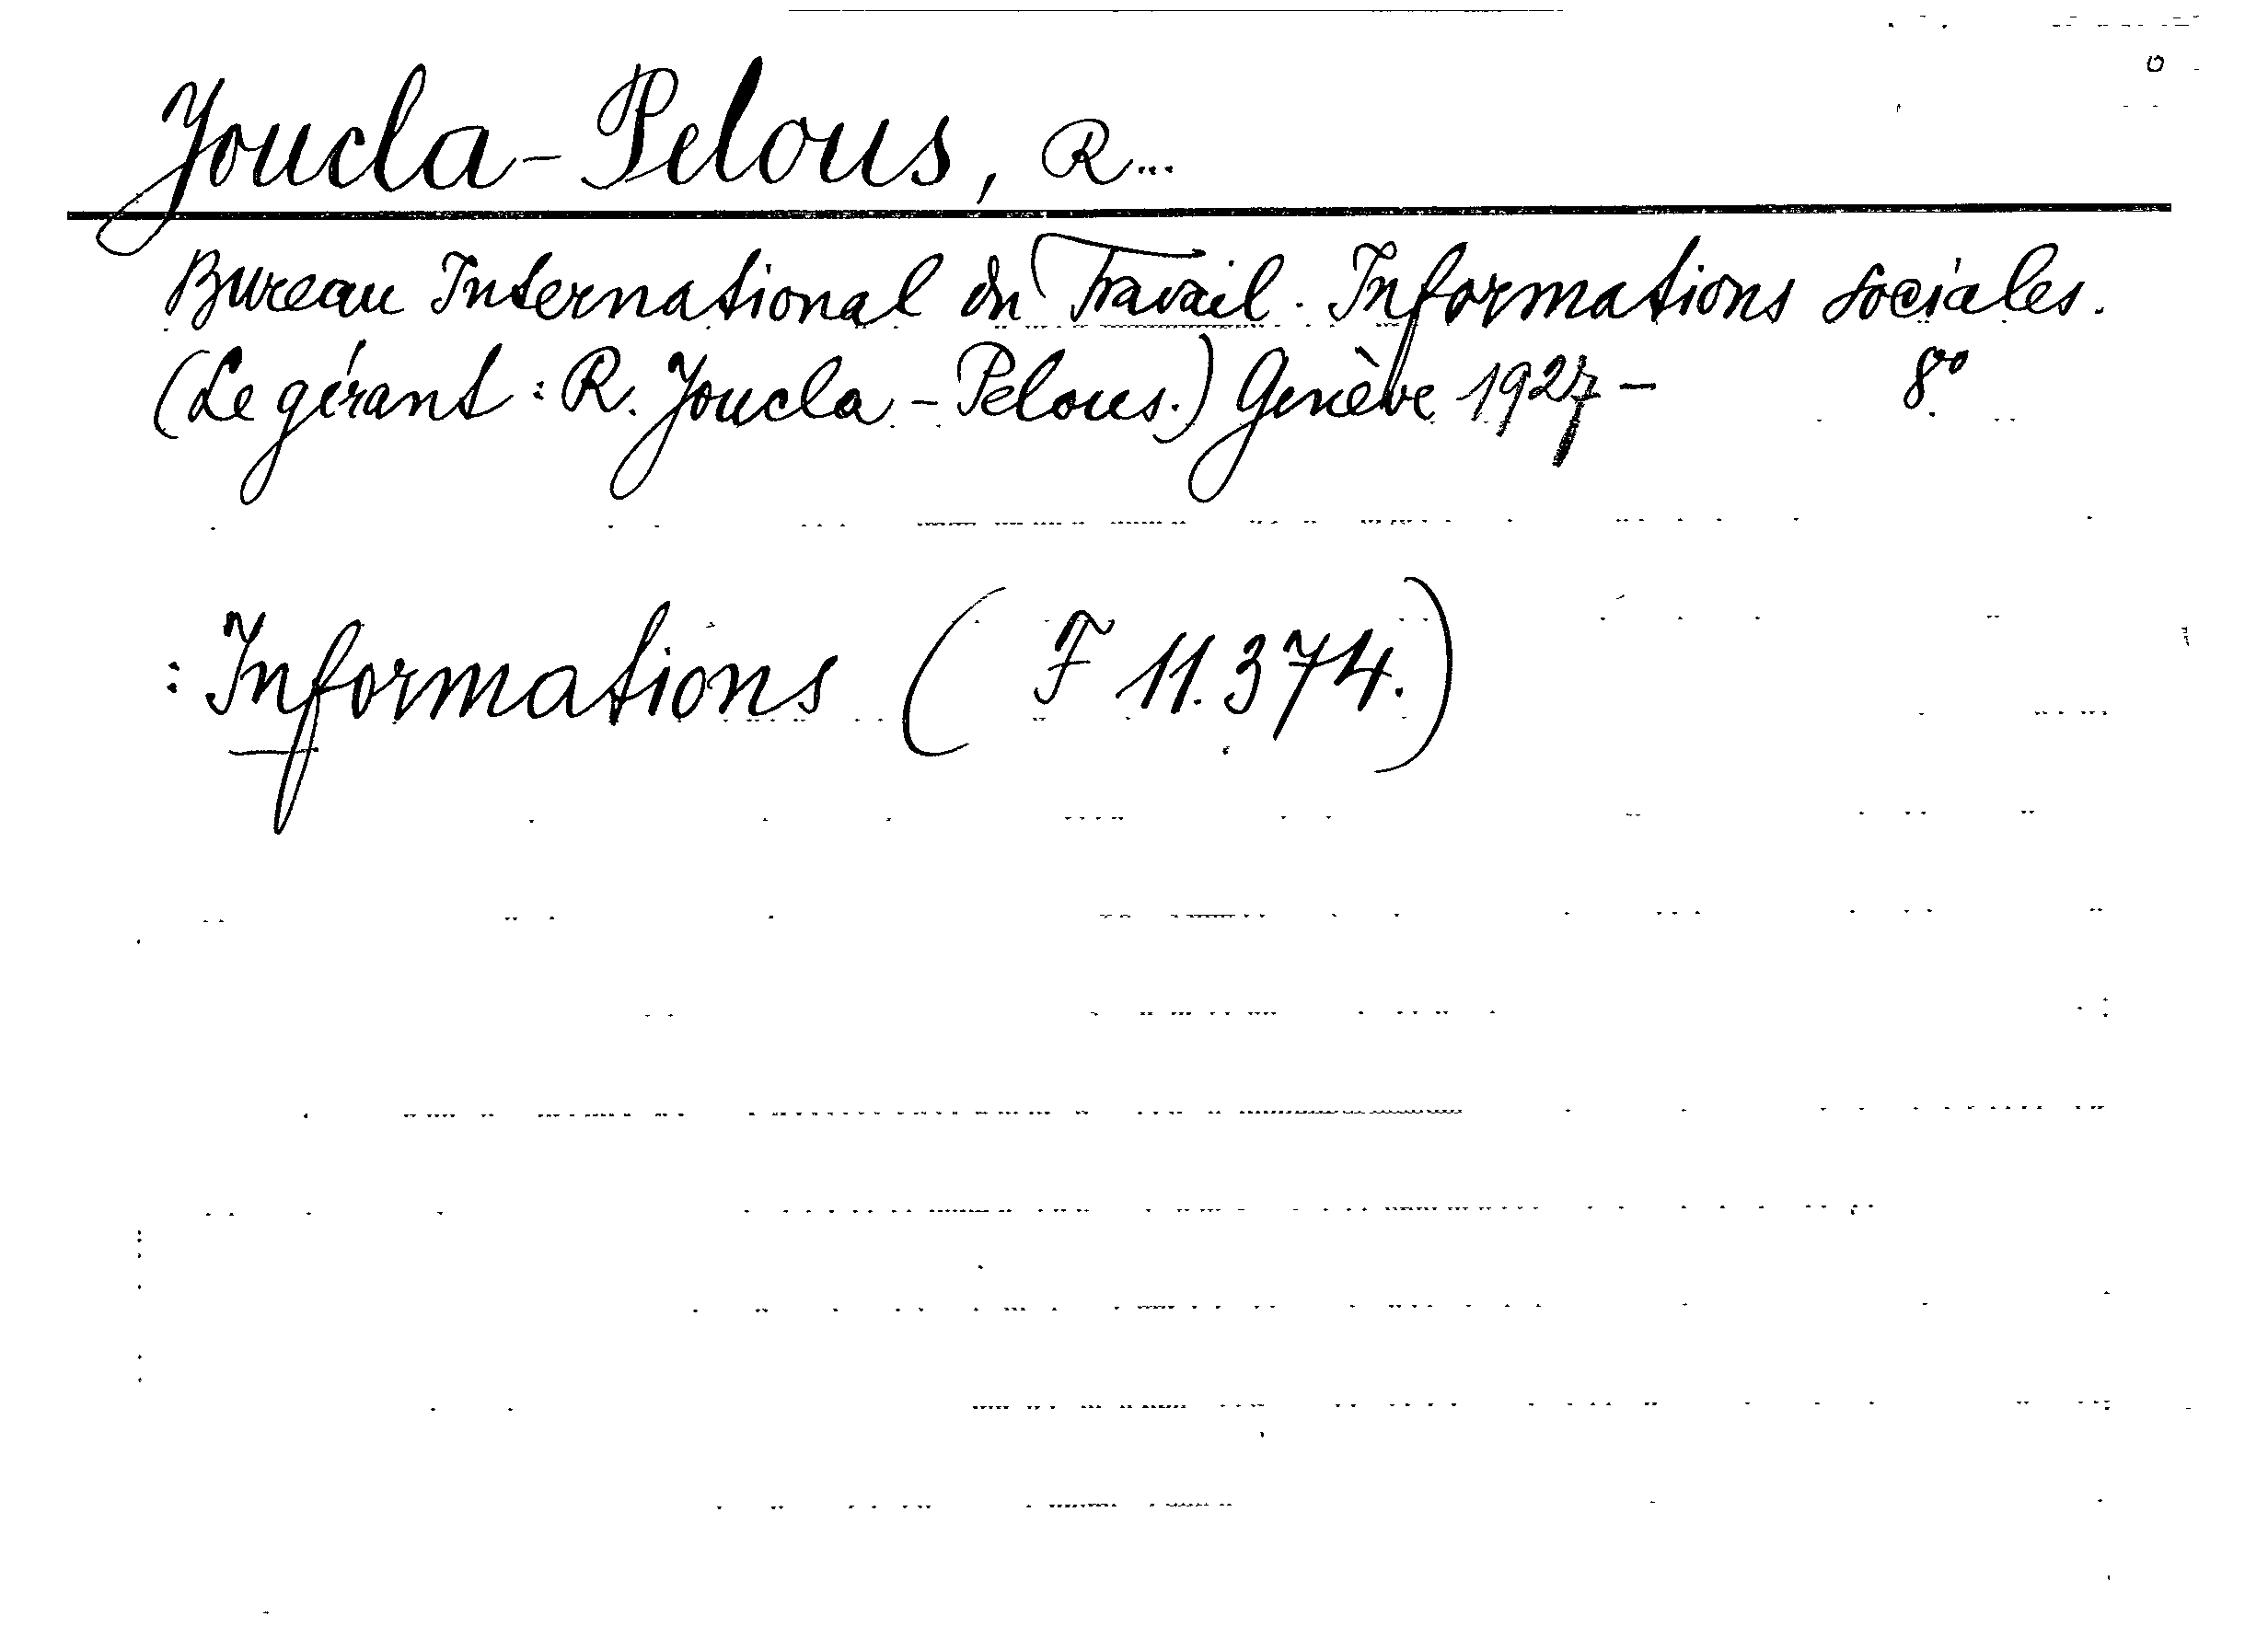 Joucla-Pelous, R...
Bureau International du Travail. Informations sociales.
(Le gérant: R. Joucla-Pelous.) Genève 1927- 8°
: Informations (F 11.374.)